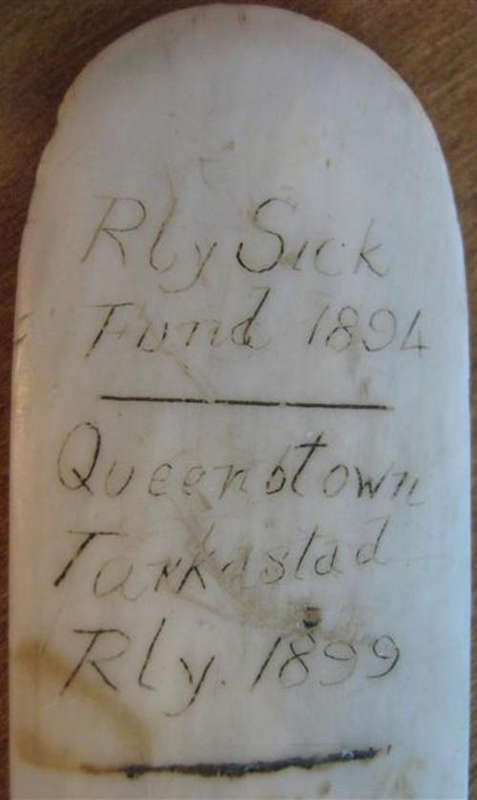 Rly Sick
Fund 1894
Queenstown
Tarkastad
Rly. 1899